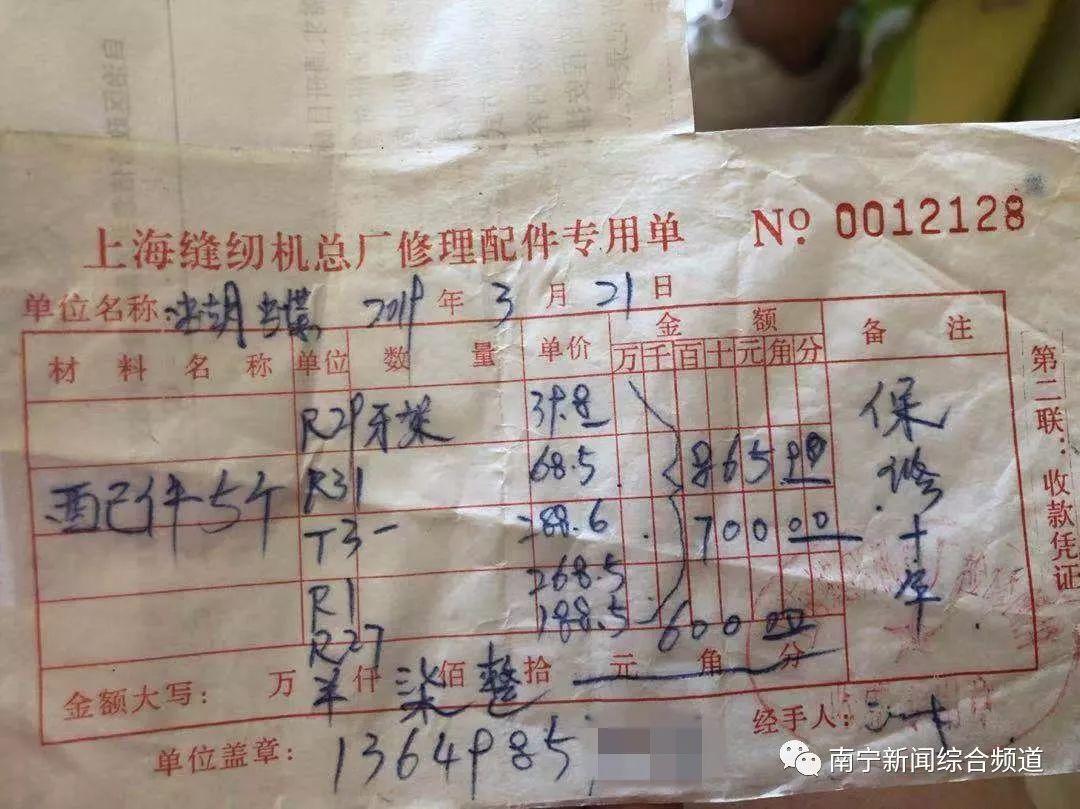 上海缝纫机总厂修理配件专用单 No. 0012128
单位名称: 2019 年 3 月 21 日
材料名称 单位 数量 单价 金额 备注
万 千 百 十 元 角 分
R29 牙架 39.8
R31 68.5 865 00
配件5个
T3一 288.6 700 00
R1 268.5
R27 188.5 600 00
保修十年
金额大写: 万 仟 柒 佰 整 拾 元 角 分
单位盖章: 1364985 经手人:
第二联:收款凭证
南宁新闻综合频道